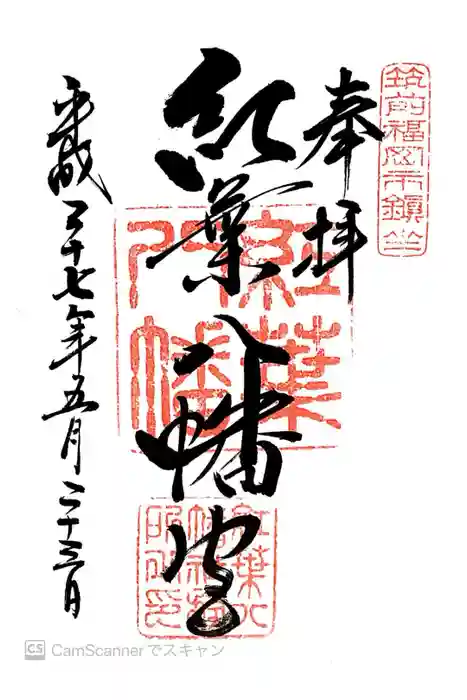 筑前福岡市鎮坐
奉拝
紅葉八幡宮
紅葉八幡
紅葉八幡宮
平成二十七年五月二十三日
CS CamScannerでスキャン